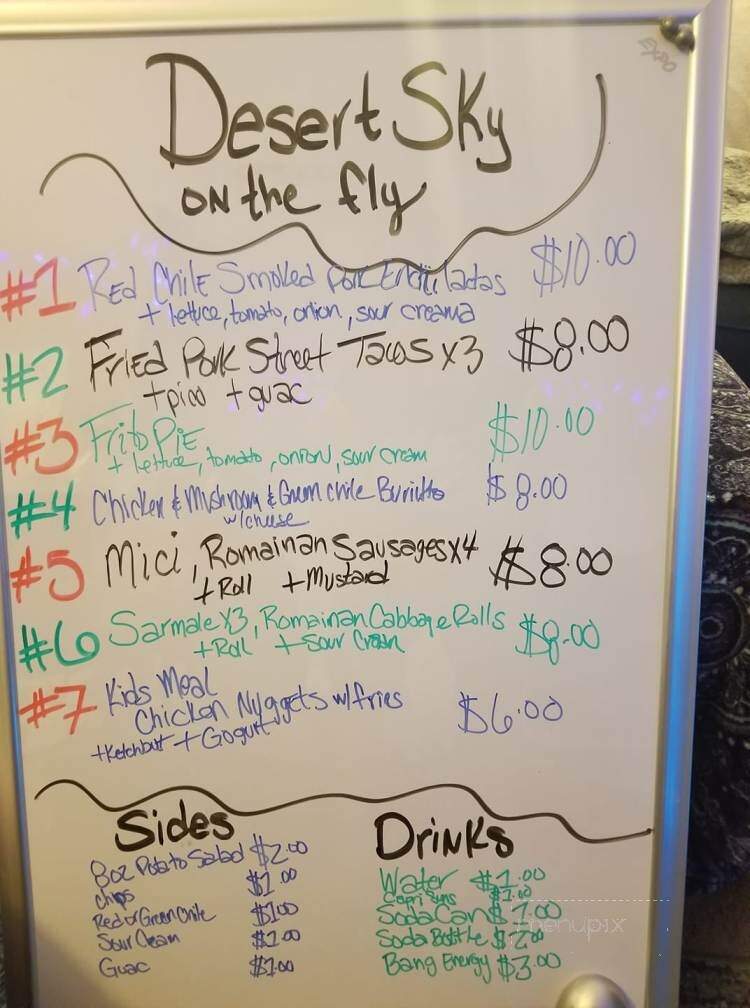 EXPO
Desert Sky
ON the fly
#1 Red Chile Smoked Pork Enchiladas $10.00
+ lettuce, tomato, onion, sour creama
#2 Fried Pork Street Tacos x3 $8.00
+pico +guac
#3 Frito Pie $10.00
+ lettuce, tomato, onion, sour cream
#4 Chicken & Mushroom & Green Chile Burritto $8.00
w/cheese
#5 Mici, Romainan Sausages x4 $8.00
+Roll +Mustard
#6 Sarmale x3, Romainan Cabbage Rolls $8.00
+Roll +Sour Cream
#7 Kids Meal
Chicken Nuggets w/fries $6.00
+Ketchbut +Gogurt
Sides
8oz Potato Salad $2.00
chips $1.00
Red or Green Chile $1.00
Sour Cream $1.00
Guac $1.00
Drinks
Water $1.00
Capri Suns $1.00
Soda Can $1.00
Soda Bottle $2.00
Bang Energy $3.00
menupix